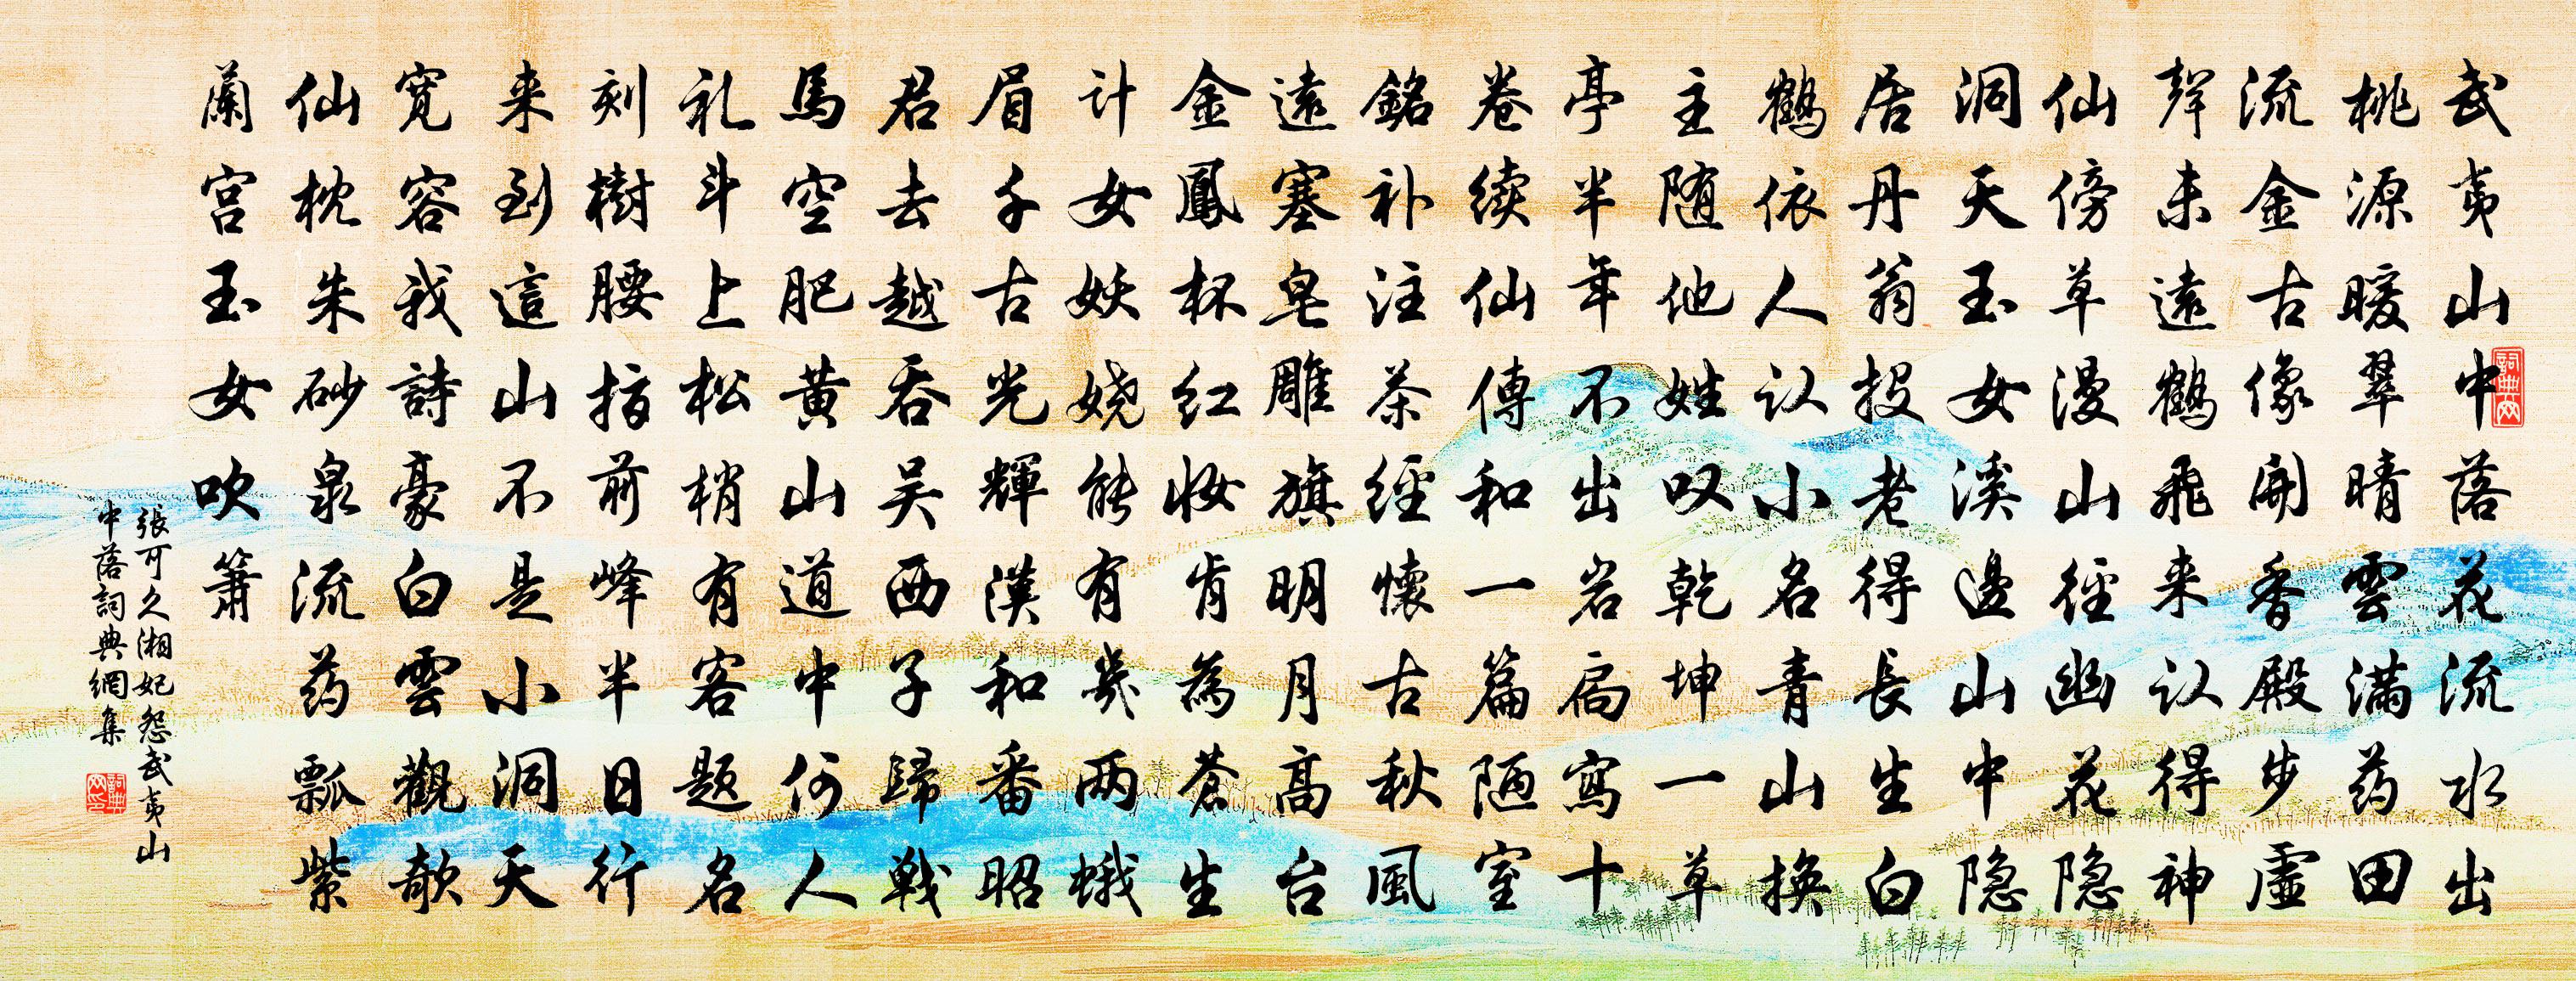 武夷山中落花流水出
桃源暖翠晴雲滿药田
流金古像開香殿步虛
聲未遠鶴飛来认得神
仙傍草漫山徑幽花隐
洞天玉女溪邊山中隐
居丹翁投老得長生白
鶴依人认小名青山换
主随他姓叹乾坤一草
亭半年不出岩扃寫十
卷续仙傳和一篇陋室
銘补注茶經懷古秋風
遠塞皂雕旗明月高台
金鳳杯红妝肯為蒼生
计女妖娆能有幾两蛾
眉千古光輝漢和番昭
君去越吞吴西子歸戰
馬空肥黄山道中何人
礼斗上松梢有客题名
刻樹腰指前峰半日行
来到這山不是小洞天
寬容我詩豪白雲觀欹
仙枕朱砂泉流药瓢紫
蘭宫玉女吹簫
張可久湘妃怨武夷山
中落詞典網集
詞典网
詞典网印